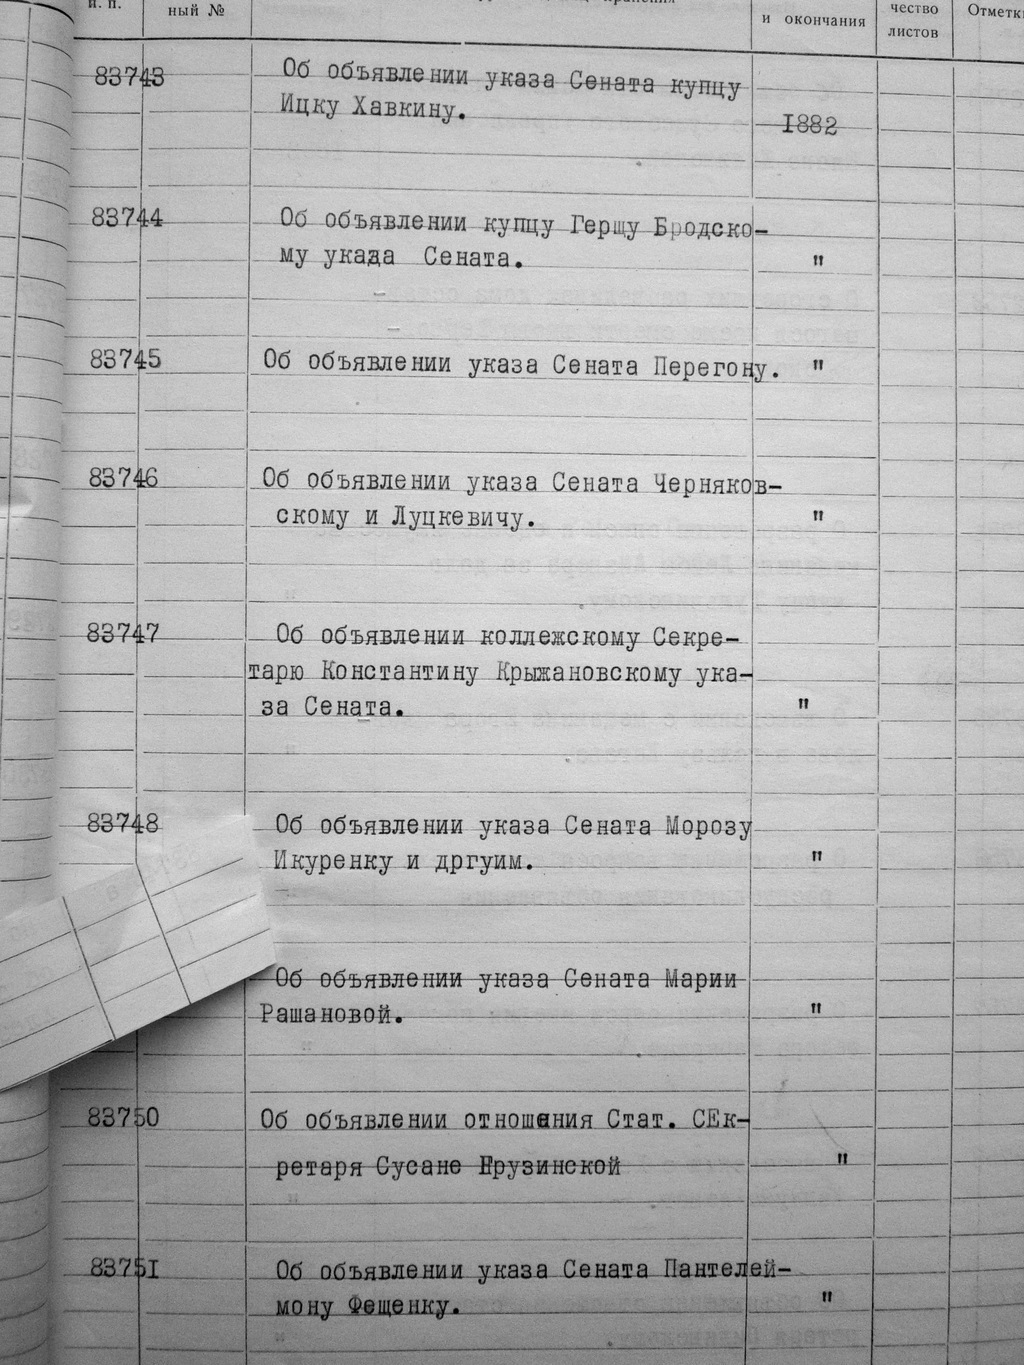 п. п.
ный №
и окончания
чество
листов
Отметки
83743 Об объявлении указа Сената купцу
Ицку Хавкину.
1882
83744 Об объявлении купцу Гершу Бродско-
му укада Сената. "
83745 Об объявлении указа Сената Перегону. "
83746 Об объявлении указа Сената Черняков-
скому и Луцкевичу. "
83747 Об объявлении коллежскому Секре-
тарю Константину Крыжановскому ука-
за Сената. "
83748 Об объявлении указа Сената Морозу
Икуренку и дргуим. "
Об объявлении указа Сената Марии
Рашановой. "
83750 Об объявлении отношения Стат. СЕк-
ретаря Сусане Ерузинской "
83751 Об объявлении указа Сената Пантелей-
мону Фещенку. "